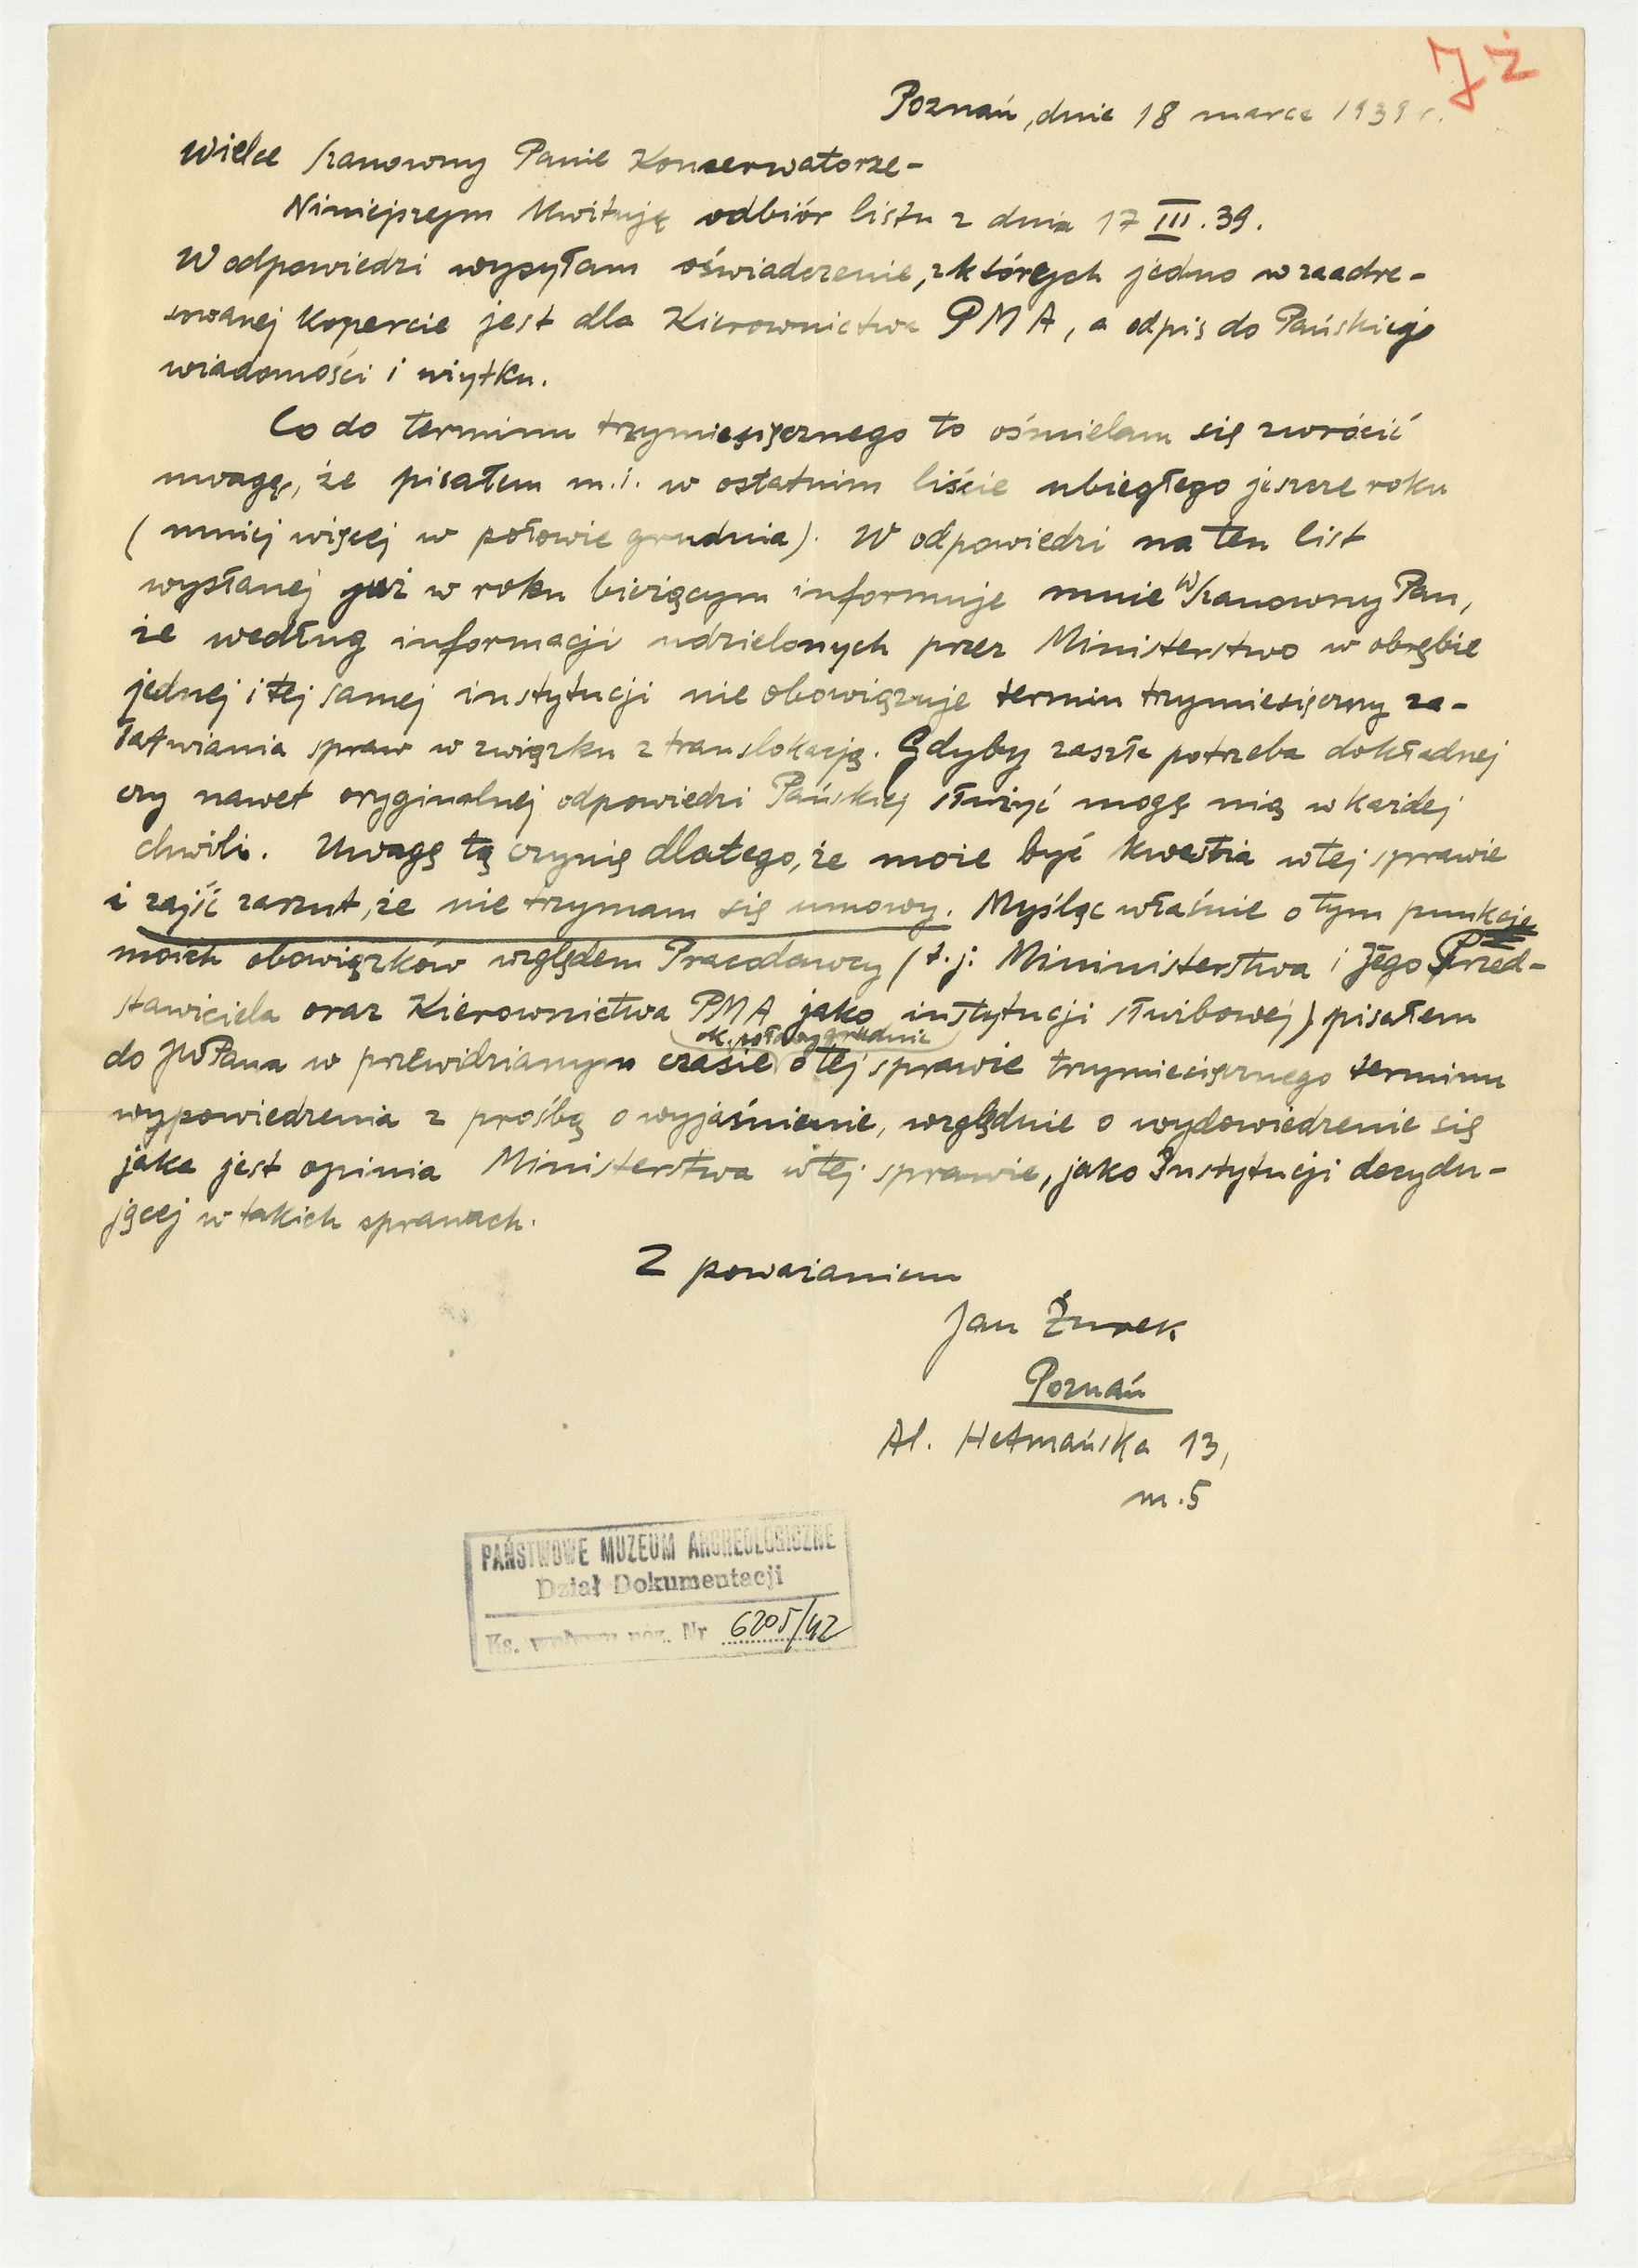 JŻ
Poznań, dnia 18 marca 1939 r.
Wielce Szanowny Panie Konserwatorze –
Niniejszym kwituję odbiór listu z dnia 17 III. 39.
W odpowiedzi wysyłam oświadczenie, z których jedno w zaadre-
sowanej kopercie jest dla Kierownictwa PMA, a odpis do Pańskiego
wiadomości i użytku.
Co do terminu trzymiesięcznego to ośmielam się zwrócić
uwagę, że pisałem m.i. w ostatnim liście ubiegłego jeszcze roku
(mniej więcej w połowie grudnia). W odpowiedzi na ten list
wysłanej już w roku bieżącym informuje mnie WSzanowny Pan,
że według informacji udzielonych przez Ministerstwo w obrębie
jednej i tej samej instytucji nie obowiązuje termin trzymiesięczny za-
łatwiania spraw w związku z translokacją. Gdyby zaszła potrzeba dokładnej
czy nawet oryginalnej odpowiedzi Pańskiej służyć mogę nią w każdej
chwili. Uwagę tą czynię dlatego, że może być kwestia w tej sprawie
i zajść zarzut, że nie trzymam się umowy. Myśląc właśnie o tym punkcie
moich obowiązków względem Pracodawcy (t.j: Mininisterstwa i Jego Przed-
stawiciela oraz Kierownictwa PMA jako instytucji służbowej) pisałem
ok. połowy grudnia
do JWPana w przewidzianym czasie o tej sprawie trzymiesięcznego terminu
wypowiedzenia z prośbą o wyjaśnienie, względnie o wydowiedzenie się
jaka jest opinia Ministerstwa w tej sprawie, jako Instytucji decydu-
jącej w takich sprawach.
Z poważaniem
Jan Żurek
Poznań
Al. Hetmańska 13,
m. 5
PAŃSTWOWE MUZEUM ARCHEOLOGICZNE
Dział Dokumentacji
Ks. wpływu poz. Nr 6205/42